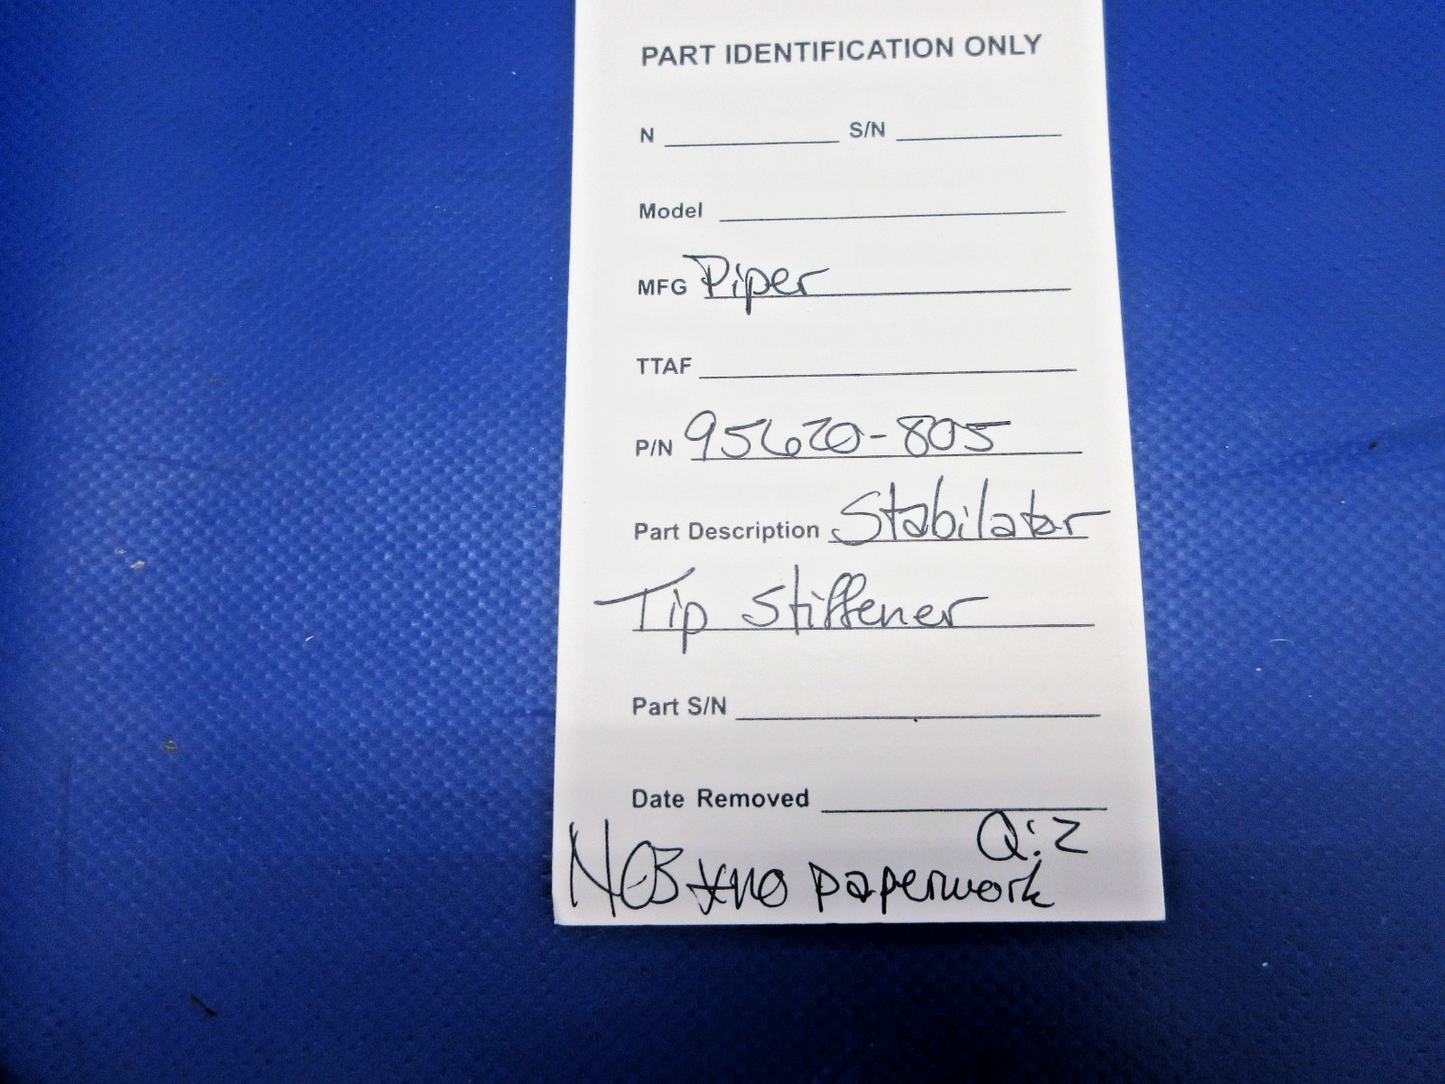 PART IDENTIFICATION ONLY
N S/N
Model
MFG Piper
TTAF
P/N 95620-805
Part Description Stabilator
Tip stiffener
Part S/N
Date Removed
Q:2
NOS *no paperwork